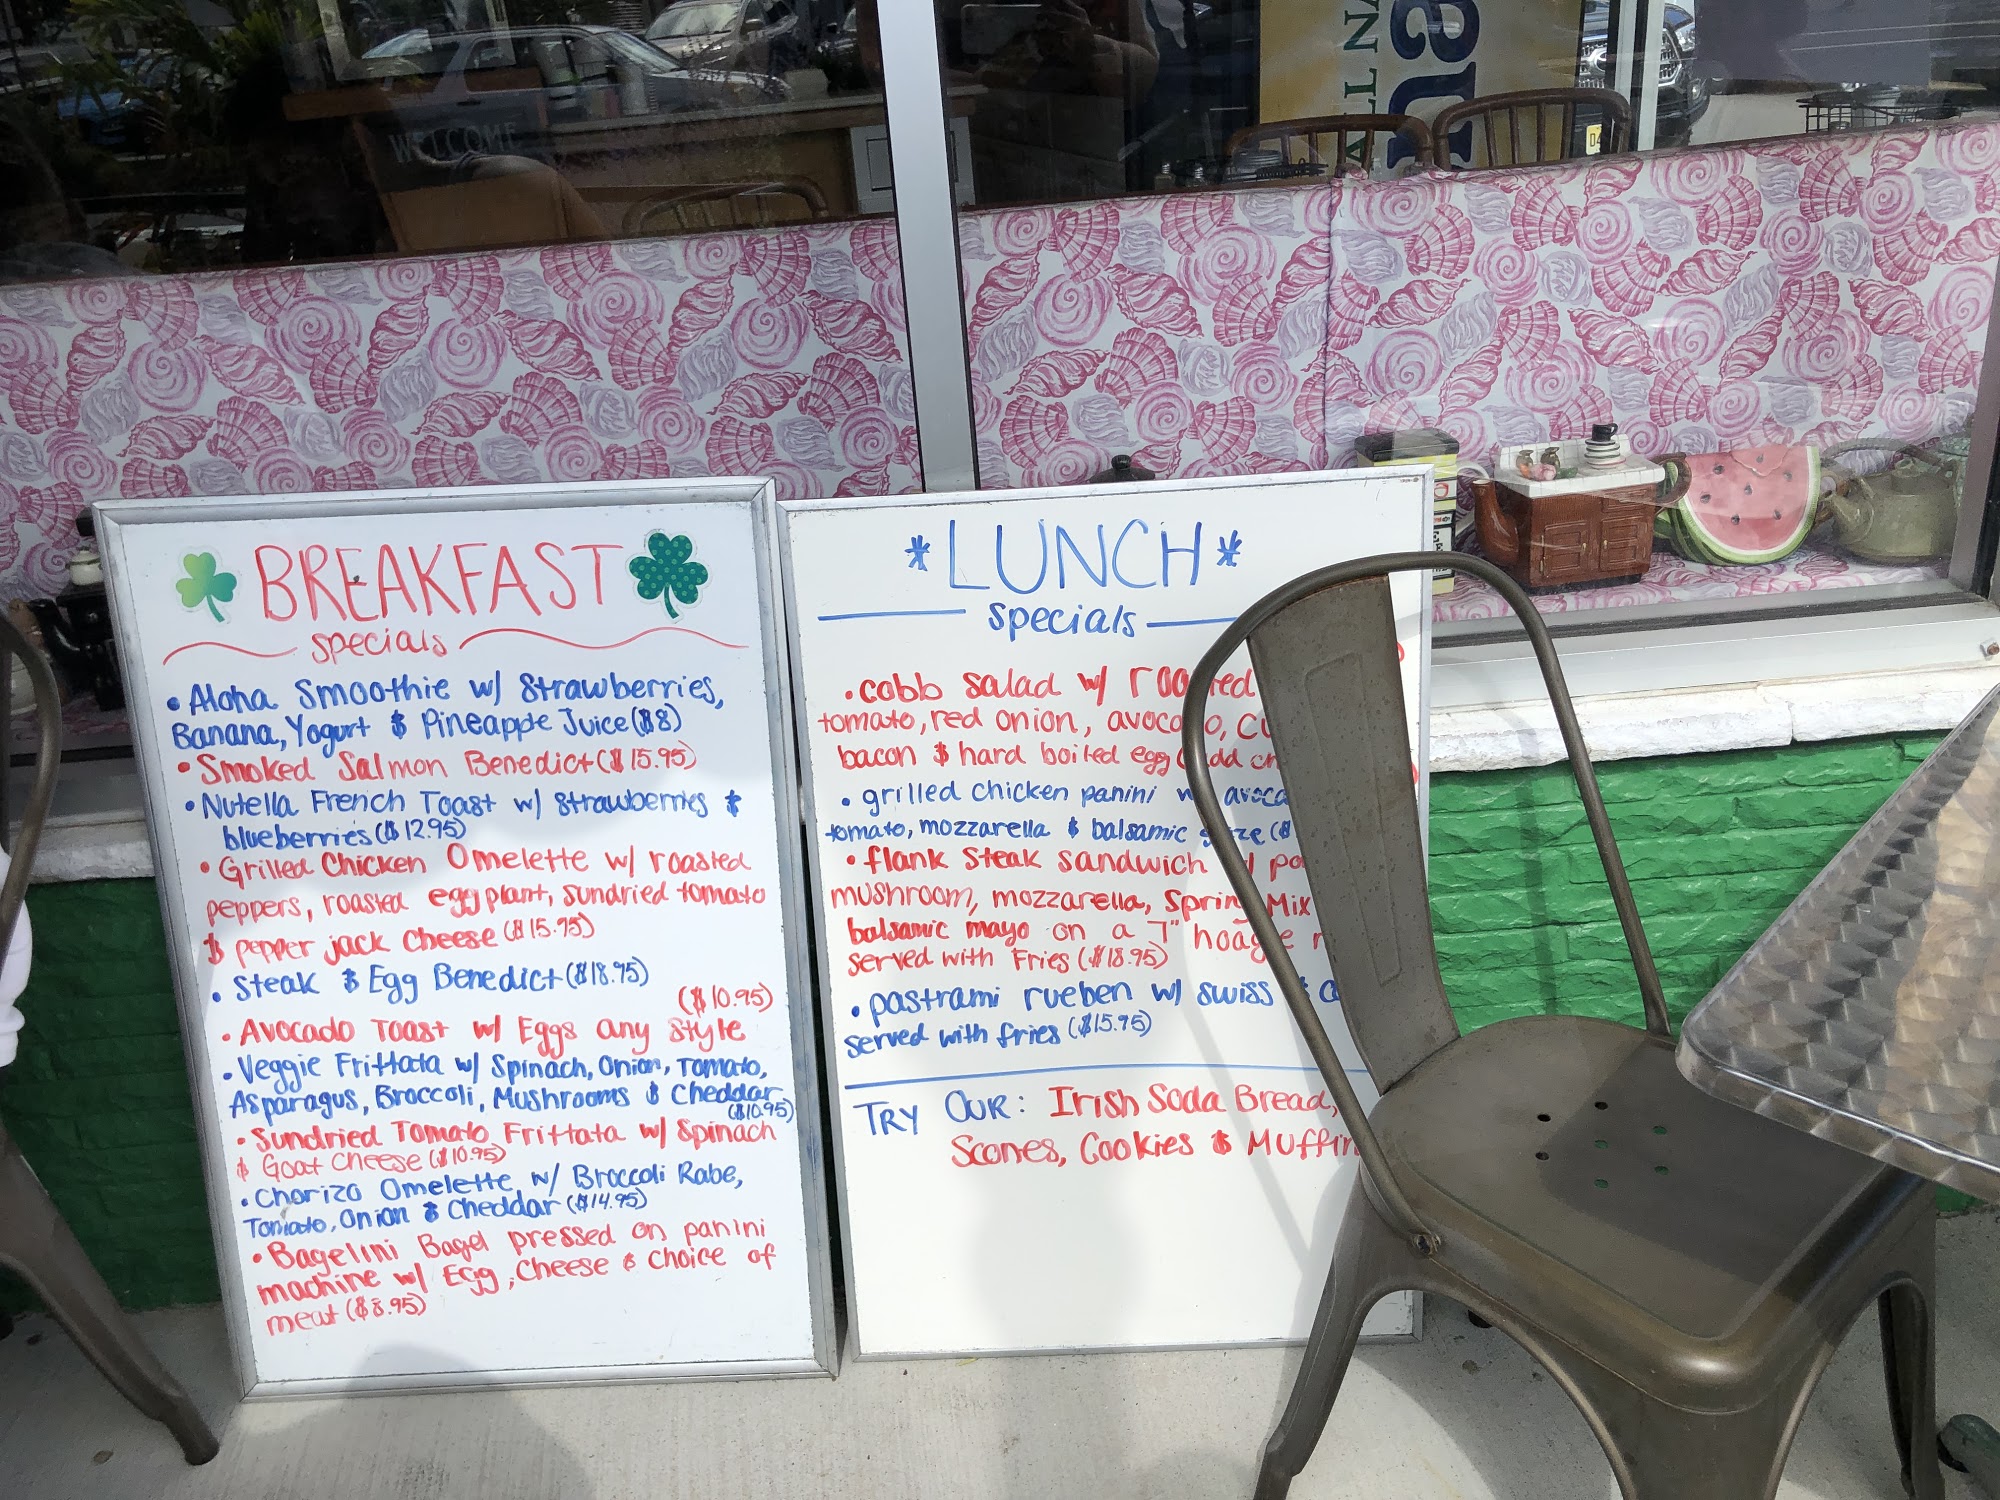 WELCOME
ALL NA
na
BREAKFAST
specials
• Aloha Smoothie w/ Strawberries,
Banana, Yogurt & Pineapple Juice ($8)
• Smoked Salmon Benedict ($15.95)
• Nutella French Toast w/ Strawberries &
blueberries ($12.95)
• Grilled Chicken Omelette w/ roasted
peppers, roasted eggplant, sundried tomato
& pepper jack cheese ($15.95)
• Steak & Egg Benedict ($18.95)
($10.95)
• Avocado Toast w/ Eggs any Style
• Veggie Frittata w/ Spinach, Onion, Tomato,
Asparagus, Broccoli, Mushrooms & Cheddar
($10.95)
• Sundried Tomato Frittata w/ Spinach
& Goat Cheese ($10.95)
• Chorizo Omelette w/ Broccoli Rabe,
Tomato, Onion & Cheddar ($14.95)
• Bagelini Bagel pressed on panini
machine w/ Egg, Cheese & Choice of
meat ($8.95)
*LUNCH*
specials
• cobb salad w/ roasted
tomato, red onion, avocado, cu
bacon & hard boiled egg (add ch
• grilled chicken panini w/ avoca
tomato, mozzarella & balsamic glaze ($
• flank steak sandwich w/ po
mushroom, mozzarella, Spring Mix
balsamic mayo on a 7" hoagie r
served with Fries ($18.95)
• pastrami rueben w/ swiss & c
served with fries ($15.95)
TRY OUR: Irish Soda Bread,
Scones, Cookies & Muffin